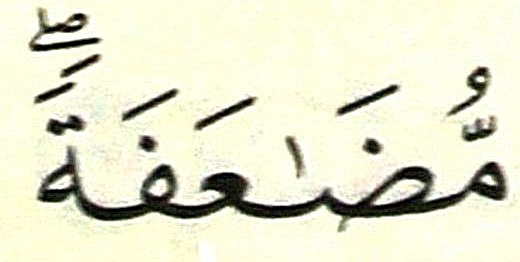 مُّضَـٰعَفَةًۖ